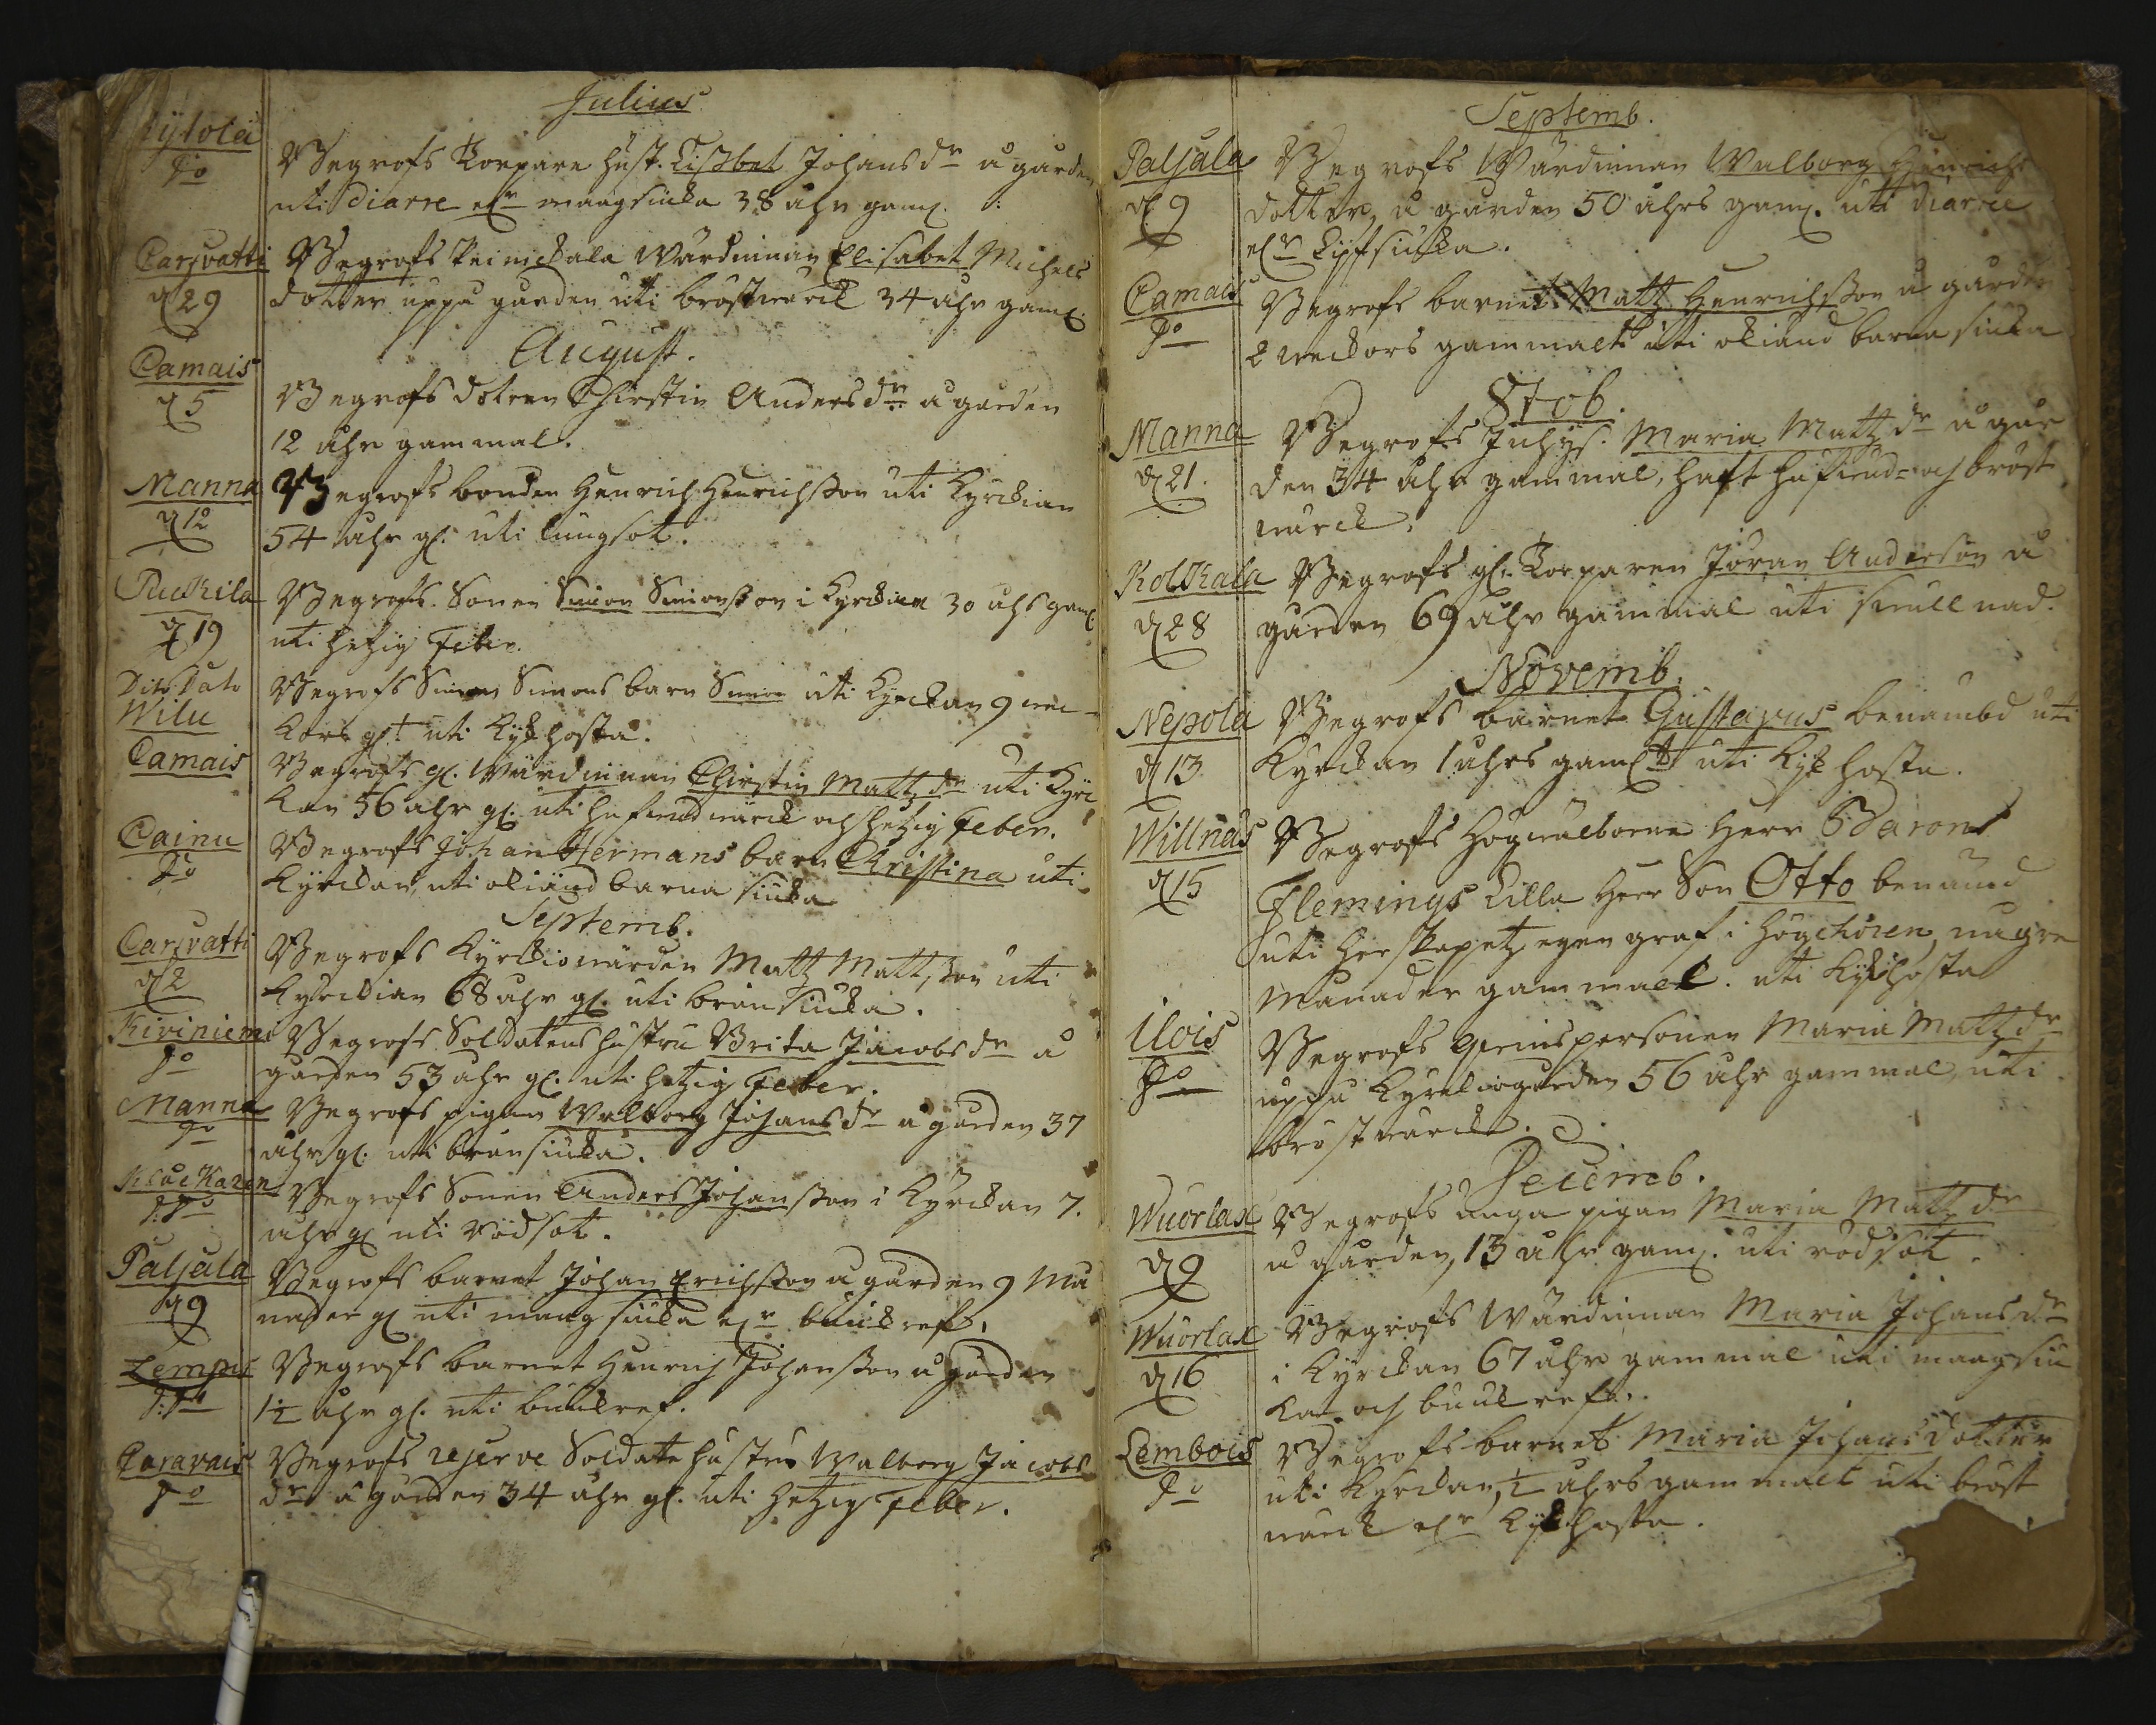 Julius
Kijlola
do
Begrofs Torpare hust. Lissbet Johans dr å gården
uti diarre elr maagsiucka 38 åhr gaml.
Carjvatti
d 29
Begrofs Peinickala Wärdinnan Elisabet Michels
dotter uppå gården uti bröstwärck 34 åhr gaml.
August.
Camais
d 5
Begrofs dotren Chirstin Anders dr å gården
12 åhr gammal.
Manna
d 12
Begrofs bonden Henrich Henrichsson uti Kyrckian
54 åhr gl. uti lungsot.
Puckila
d 19
Begrofs Sonen Simon Simonsson i Kyrckian 30 åhrs gaml
uti hetzig Feber.
Dito Dato
Wilu
Begrofs Simon Simons barn Simon uti Kyrckan 9 wec-
kors glt uti Kijkhosta.
Camais
Begrofs gl. Wärdinnan Chirstin Mattz dr uti Kyrc
kan 56 åhr gl. uti hufwudwärck och hetzig Feber.
Cainu
do
Begrofs Johan Hermans barn Christina uti
Kyrckan, uti okiänd barna siucka
Septemb.
Carjvatti
d 2
Begrofs Kyrckiowärden Mattz Mattsson uti
Kyrckian 68 åhr gl. uti bränsiucka.
Kiviniemi
do
Begrofs Soldatens hustru Brita Jacobs dr å
gården 53 åhr gl. uti hetzig Feber.
Manna
do
Begrofs pigan Walborg Johans dr å gården 37
åhr gl. uti bränsiucka.
Klockaren
d: do
Begrofs Sonen Anders Johansson i Kyrckan 7.
åhr gl uti rödsot.
Paljala
d 9
Begrofs barnet Johan Erichsson å gården 9 Må
nader gl uti maagsiucka elr buukref.
Lempis
d: do
Begrofs barnet Henrich Johansson å gården
1½ åhr gl. uti buukref.
Caravais
do
Begrofs reserve Soldate hustru Walborg Jacobs
dr å gården 34 åhr gl. uti hetzig Feber.
Septemb.
Paljala
d 9
Begrofs Wärdinnan Walborg Henrichs
dotter, å gården 50 åhrs gaml. uti diarre
elr Lijfsiucka.
Camais
do
Begrofs barnet Matz Henrichsson å gården
2 weckors gammalt uti okiänd barna siucka
8tob.
Manna
d 21.
Begrofs Inhys. Maria Mattz dr å går
den 34 åhr gammal, haft hufwud- och bröst
wärck.
Kolkala
d 28
Begrofs gl. Torparen Jöran Anderson å
gården 69 åhr gammal uti swullnad.
Novemb.
Nepola
d 13
Begrofs barnet Gustavus benämbd uti
Kyrckan 1 åhrs gamlt uti Kijkhosta.
Willnäs
d 15
Begrofs Högwälborne Herr Barons
Flemings Lilla Herr Son Otto benämd
uti Herskapetz egen graf i högchoren, några
Månader gammal. uti Kijkhosta
Ilois
do
Begrofs Qwinspersonen Maria Mattz dr
uppå Kyrckiogården 56 åhr gammal, uti
bröstwärck.
Decemb.
Wuorlax
d 9
Begrofs unga pigan Maria Mattz dr
å gården, 13 åhr gaml. uti rödsot.
Wuorlax
d 16
Begrofs Wärdinnan Maria Johans dr
i Kyrckan 67 åhr gammal uti maagsiu
ka och buukref.
Lembois
do
Begrofs barnet Maria Johansdotter
uti Kyrckan, ½ åhrs gammalt uti bröst
wärck elr Kijkhosta.